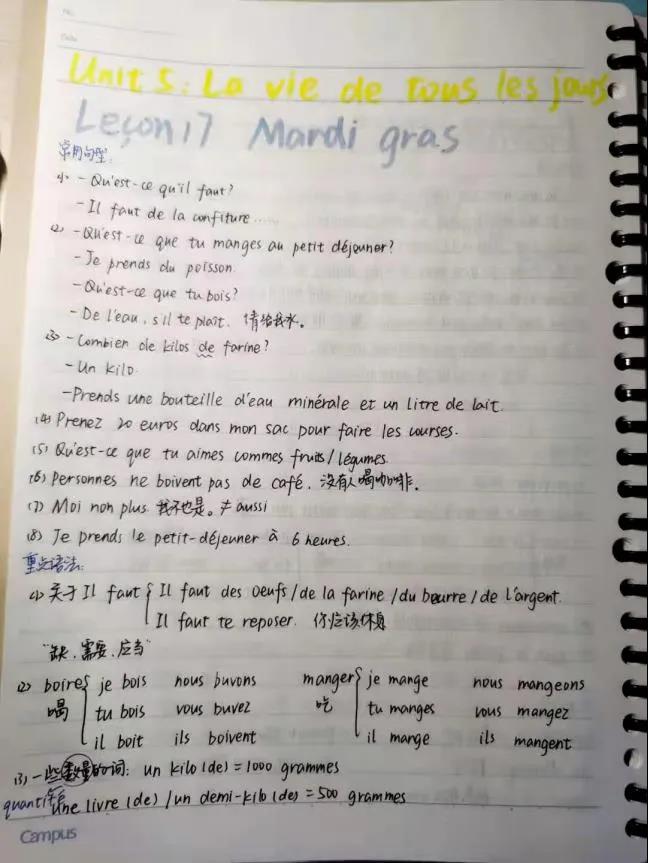 No.
Date
Unit 5: La vie de tous les jours
Leçon 17 Mardi gras
常用句型:
(1) - Qu'est-ce qu'il faut?
- Il faut de la confiture......
(2) - Qu'est-ce que tu manges au petit déjeuner?
- Je prends du poisson.
- Qu'est-ce que tu bois?
- De l'eau, s'il te plaît. 请给我水。
(3) - Combien de kilos de farine?
- Un kilo.
- Prends une bouteille d'eau minérale et un litre de lait.
(4) Prenez 20 euros dans mon sac pour faire les courses.
(5) Qu'est-ce que tu aimes commes fruits/légumes.
(6) Personnes ne boivent pas de café. 没有人喝咖啡。
(7) Moi non plus 我不也是。≠ aussi
(8) Je prends le petit-déjeuner à 6 heures.
重点语法:
(1) 关于 Il faut { Il faut des oeufs/de la farine/du beurre/de l'argent.
Il faut te reposer. 你应该休息
"缺, 需要, 应当"
(2) boire { je bois nous buvons manger { je mange nous mangeons
喝 tu bois vous buvez 吃 tu manges vous mangez
il boit ils boivent il mange ils mangent
(3) 一些数量的词: un kilo (de) = 1000 grammes
quantité une livre (de) / un demi-kilo (de) = 500 grammes
Campus